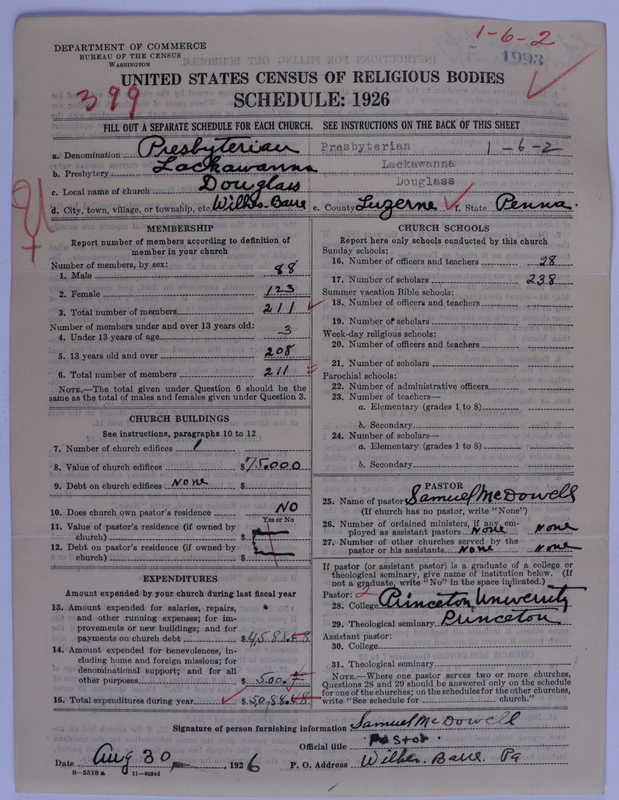 1-6-2
1993
DEPARTMENT OF COMMERCE
BUREAU OF THE CENSUS
WASHINGTON
UNITED STATES CENSUS OF RELIGIOUS BODIES
399
SCHEDULE: 1926
FILL OUT A SEPARATE SCHEDULE FOR EACH CHURCH. SEE INSTRUCTIONS ON THE BACK OF THIS SHEET
a. Denomination Presbyterian Presbyterian 1-6-2
b. Presbytery Lackawanna Lackawanna
c. Local name of church Douglass Douglass
d. City, town, village, or township, etc. Wilkes-Barre e. County Luzerne f. State Penna.
MEMBERSHIP
Report number of members according to definition of
member in your church
Number of members, by sex:
1. Male 88
2. Female 123
3. Total number of members 211
Number of members under and over 13 years old:
4. Under 13 years of age 3
5. 13 years old and over 208
6. Total number of members 211
NOTE.—The total given under Question 6 should be
same as the total of males and females given under Question 3.
CHURCH BUILDINGS
See instructions, paragraphs 10 to 12
7. Number of church edifices 1
8. Value of church edifices $75.000
9. Debt on church edifices None $
10. Does church own pastor's residence NO
Yes or No
11. Value of pastor's residence (if owned by
church) $
12. Debt on pastor's residence (if owned by
church) $
EXPENDITURES
Amount expended by your church during last fiscal year
13. Amount expended for salaries, repairs,
and other running expenses; for im-
provements or new buildings; and for
payments on church debt $4588.48
14. Amount expended for benevolences, in-
cluding home and foreign missions; for
denominational support; and for all
other purposes $500.
15. Total expenditures during year $5088.48
CHURCH SCHOOLS
Report here only schools conducted by this church
Sunday schools:
16. Number of officers and teachers 28
17. Number of scholars 238
Summer vacation Bible schools:
18. Number of officers and teachers
19. Number of scholars
Week-day religious schools:
20. Number of officers and teachers
21. Number of scholars
Parochial schools:
22. Number of administrative officers
23. Number of teachers—
a. Elementary (grades 1 to 8)
b. Secondary
24. Number of scholars—
a. Elementary (grades 1 to 8)
b. Secondary
PASTOR
25. Name of pastor Samuel McDowell
(If church has no pastor, write "None")
26. Number of ordained ministers, if any, em-
ployed as assistant pastors None None
27. Number of other churches served by the
pastor or his assistants None None
If pastor (or assistant pastor) is a graduate of a college or
theological seminary, give name of institution below. (If
not a graduate, write "No" in the space indicated.)
Pastor: 2
28. College Princeton University
29. Theological seminary Princeton
Assistant pastor:
30. College
31. Theological seminary
NOTE.—Where one pastor serves two or more churches,
Questions 28 and 29 should be answered only on the schedule
for one of the churches; on the schedules for the other churches,
write "See schedule for church."
Signature of person furnishing information Samuel McDowell
Official title Pastor
Date Aug 30, 1926 P. O. Address Wilkes-Barre Pa
8—5518a 11—9684d